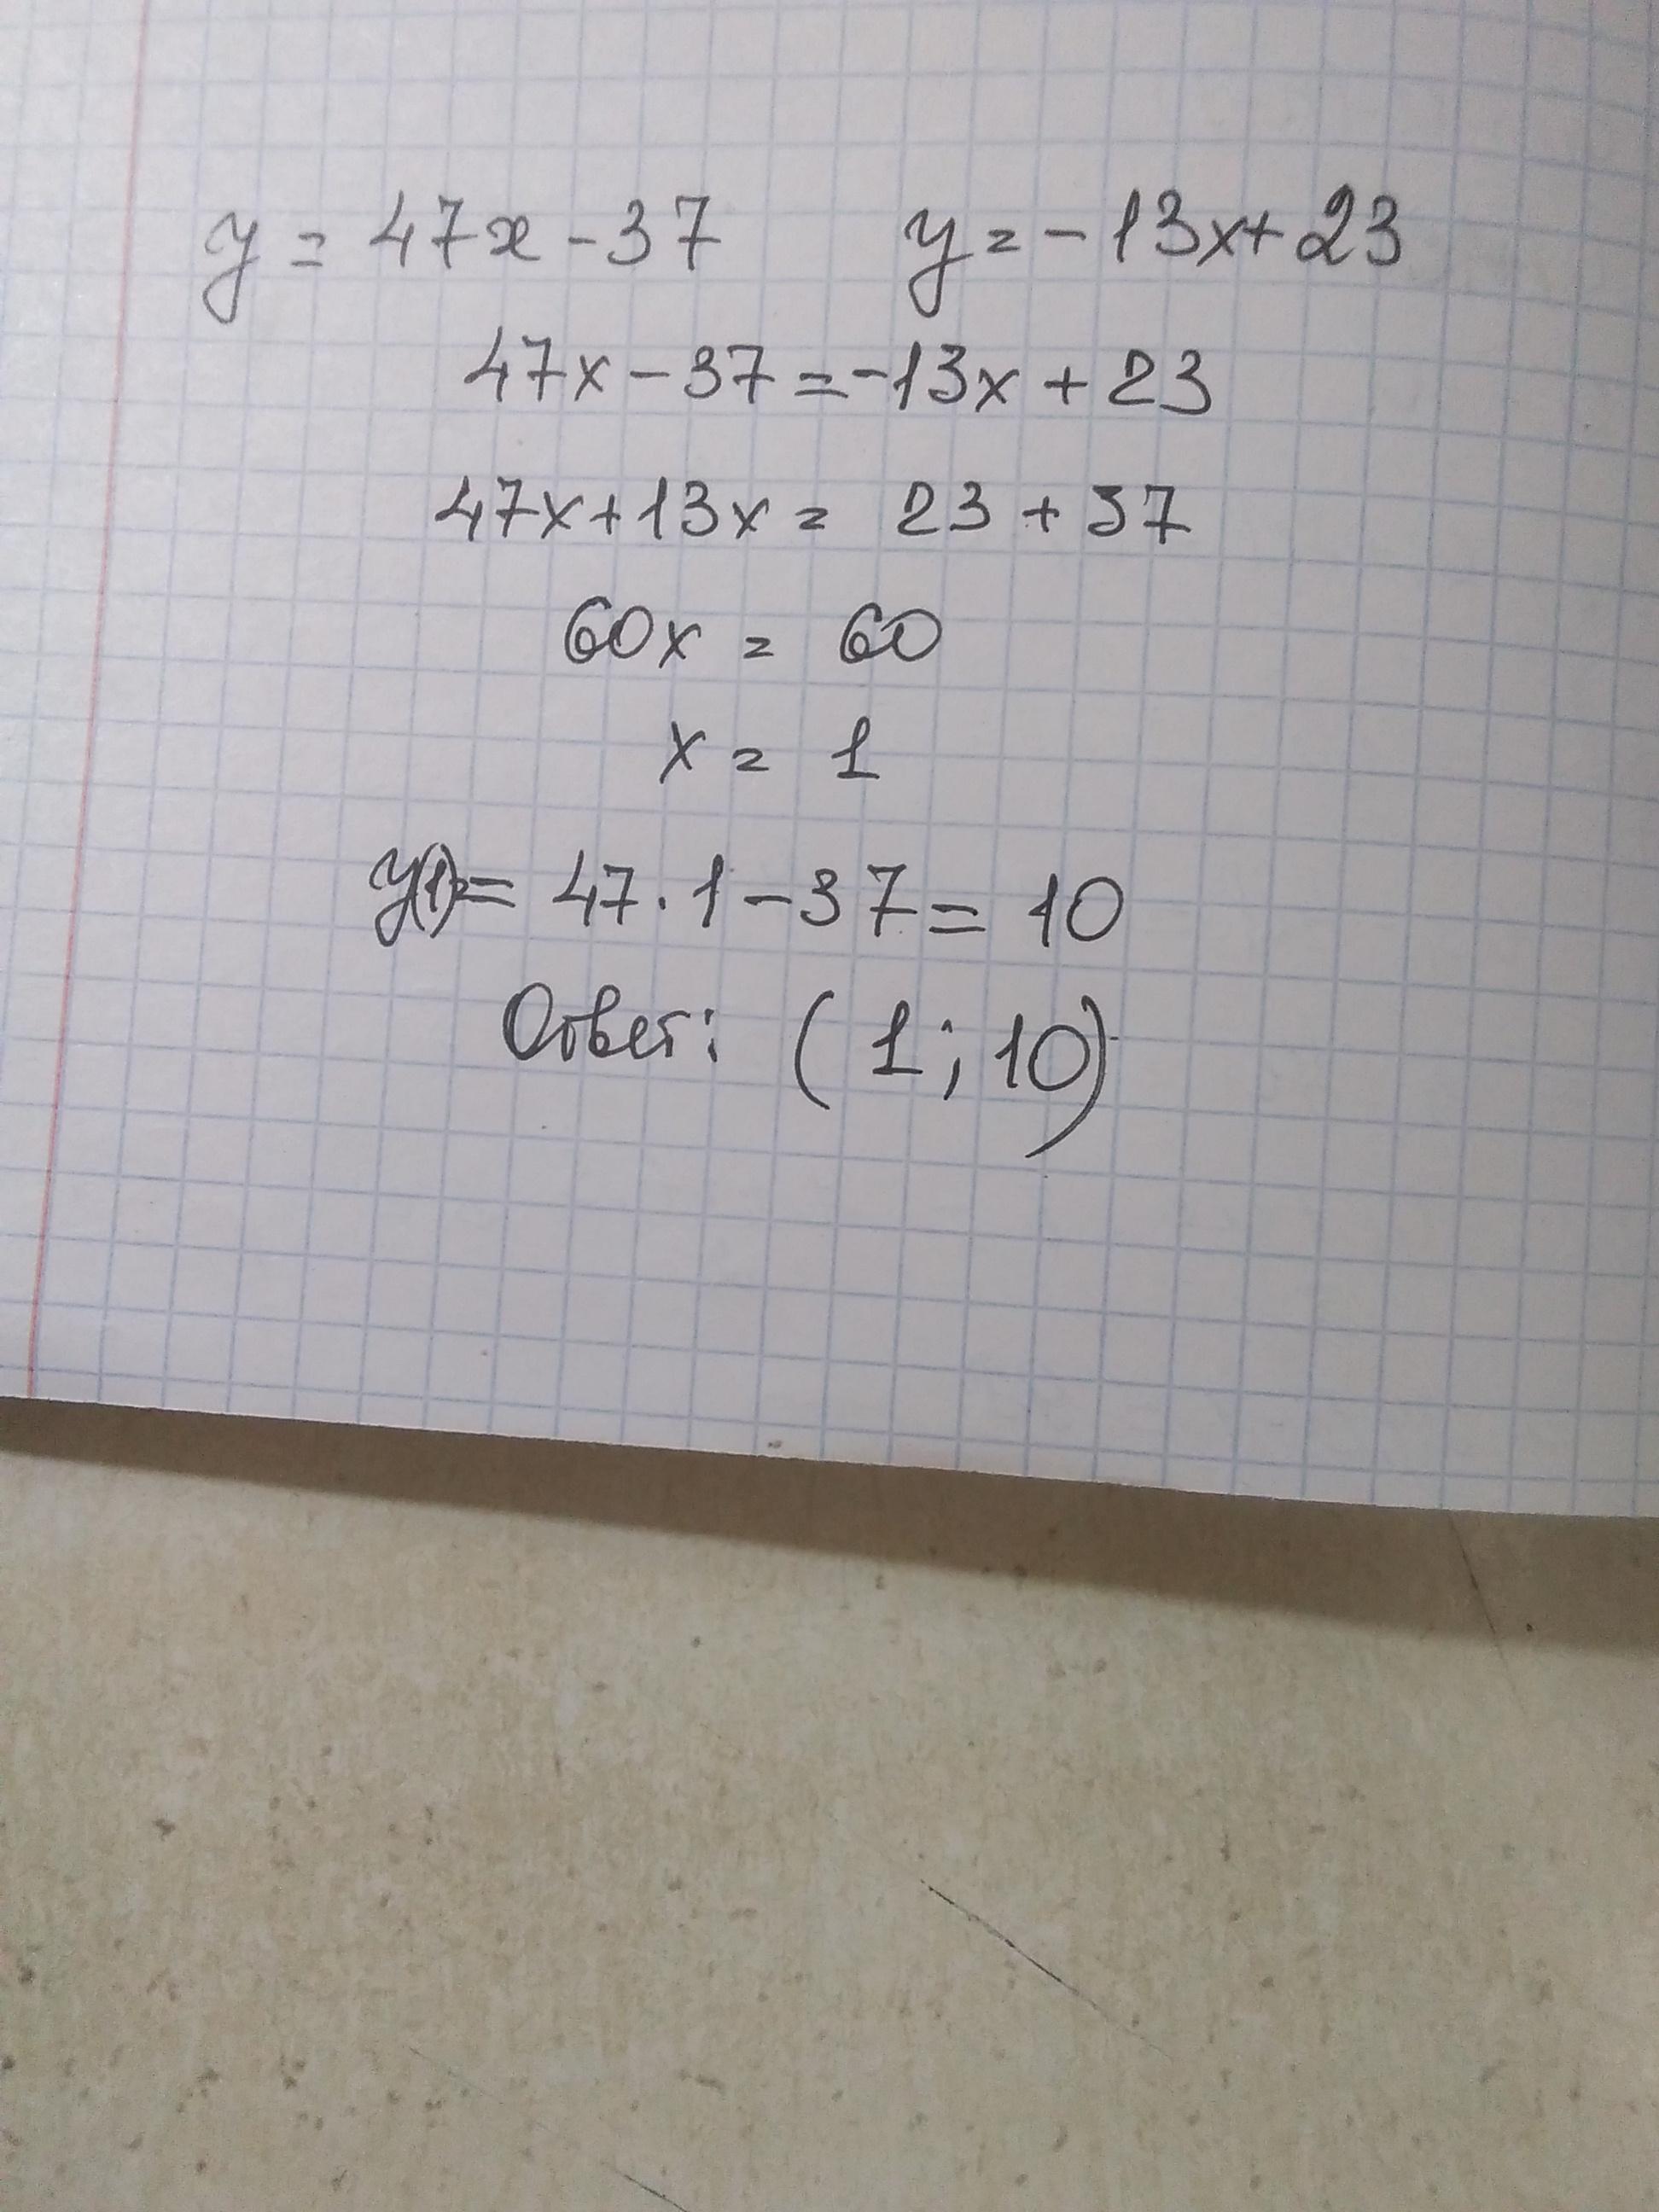 y = 47x - 37 y = -13x + 23
47x - 37 = -13x + 23
47x + 13x = 23 + 37
60x = 60
x = 1
y(1) = 47 · 1 - 37 = 10
Ответ: (1; 10)